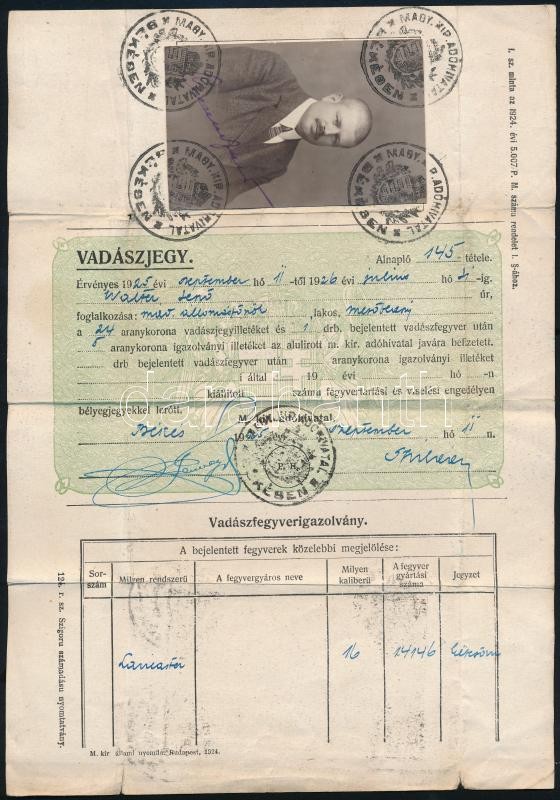 MAGY. KIR. ADÓHIVATAL ★ BÉKÉSEN ★
MAGY. KIR. ADÓHIVATAL ★ BÉKÉSEN ★
MAGY. KIR. ADÓHIVATAL ★ BÉKÉSEN ★
MAGY. KIR. ADÓHIVATAL ★ BÉKÉSEN ★
I. sz. minta az 1924. évi 5.007/P. M. számu rendelet I. §-ához.
VADÁSZJEGY.
Alnapló 145 tétele.
Érvényes 1925 évi szeptember hó 11-től 1926 évi julius hó 31-ig.
Walter Jenő úr,
foglalkozása: máv. lakos,
a 24 aranykorona vadászjegyilletéket és 1 drb. bejelentett vadászfegyver után
8 aranykorona igazolványi illetéket az alulirott m. kir. adóhivatal javára befizetett.
drb bejelentett vadászfegyver után aranykorona igazolványi illetéket
által 19 évi hó -n
kiállított számu fegyvertartási és viselési engedélyen
bélyegjegyekkel lerótt.
M. kir. adóhivatal.
Békés 1925 évi szeptember hó 11 n.
MAGY. KIR. ADÓHIVATAL ★ BÉKÉSEN ★
P. H.
Vadászfegyverigazolvány.
A bejelentett fegyverek közelebbi megjelölése:
Sor-szám
Milyen rendszerü
A fegyvergyáros neve
Milyen kaliberü
A fegyver gyártási száma
Jegyzet
Lancaster 16 14146
12a. r. sz. Szigoru számadásu nyomtatvány.
M. kir. állami nyomda, Budapest, 1924.